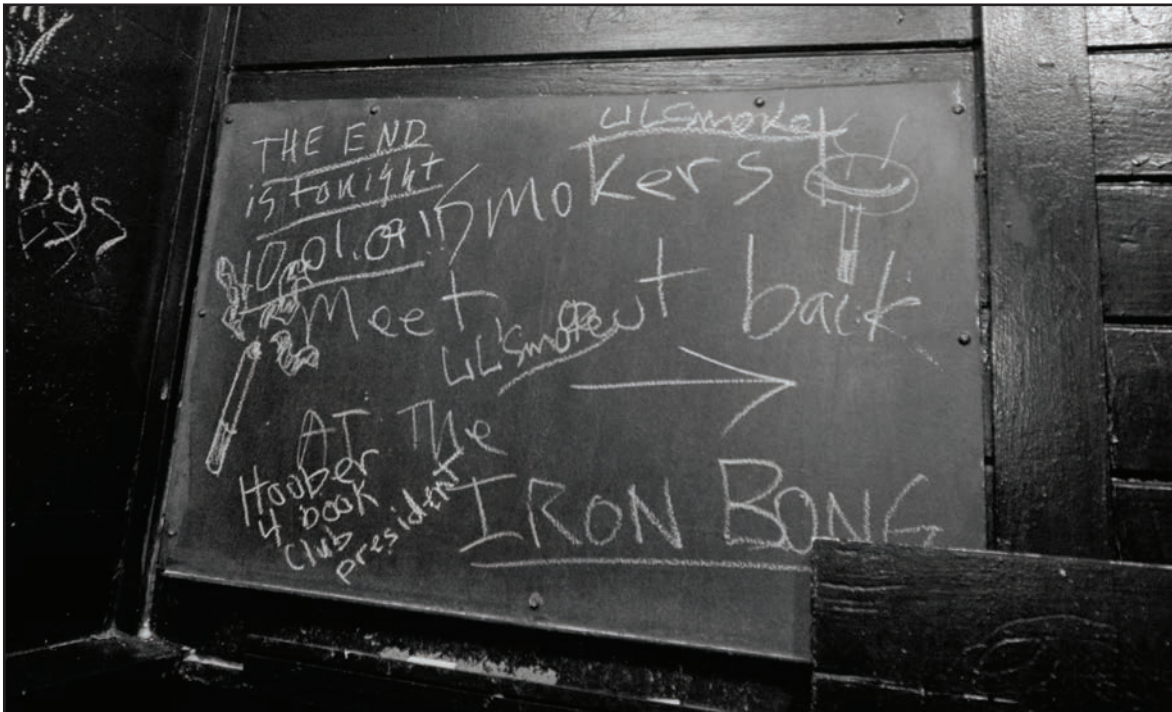 THE END
is tonight
LiL Smoke
Smokers
Meet out back
LiL Smoke
AT THE
IRON BONG
Hoober
4 book
club
president
ngs